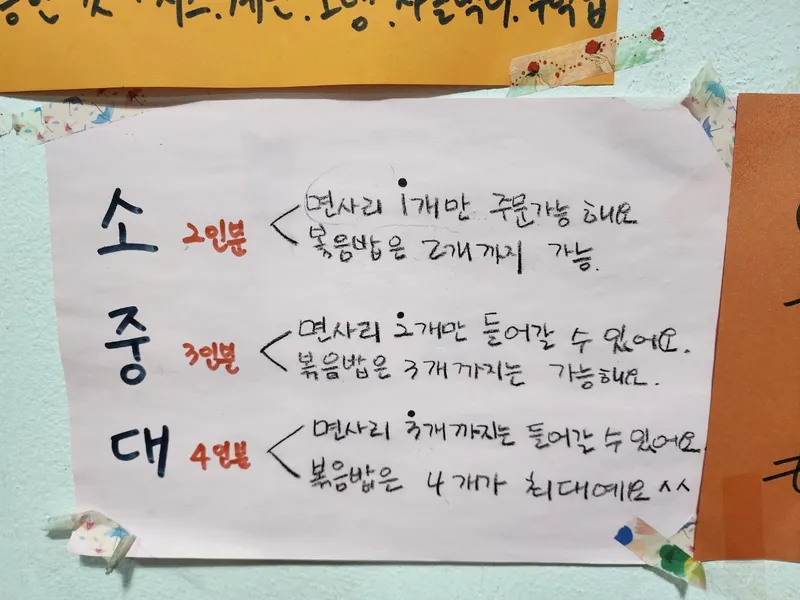 소 2인분 면사리 1개만 주문가능 해요
볶음밥은 2개까지 가능.
중 3인분 면사리 2개만 들어갈 수 있어요.
볶음밥은 3개까지는 가능해요.
대 4인분 면사리 3개까지는 들어갈 수 있어요
볶음밥은 4개가 최대예요 ^^